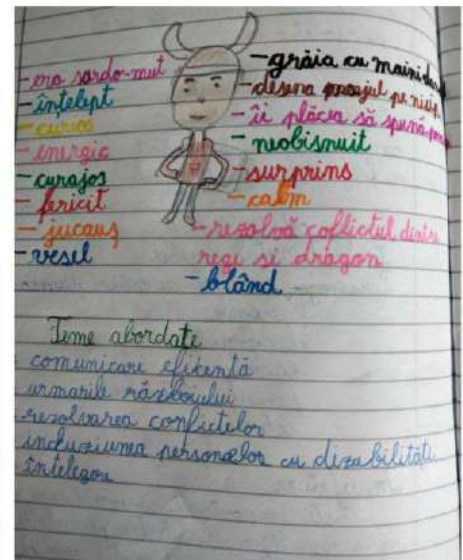 - era surdo-mut
- înțelept
- curios
- energic
- curajos
- fericit
- jucauș
- vesel
- grăia cu maini
- desena mesajul pe nisip
- îi plăcea să spună
- neobișnuit
- surprins
- calm
- rezolvă coflictul dintre
regi si dragon
- blând
Teme abordate
comunicare eficientă
urmarile războiului
rezolvarea conflictelor
incluziunea persoanelor cu dizabilități.